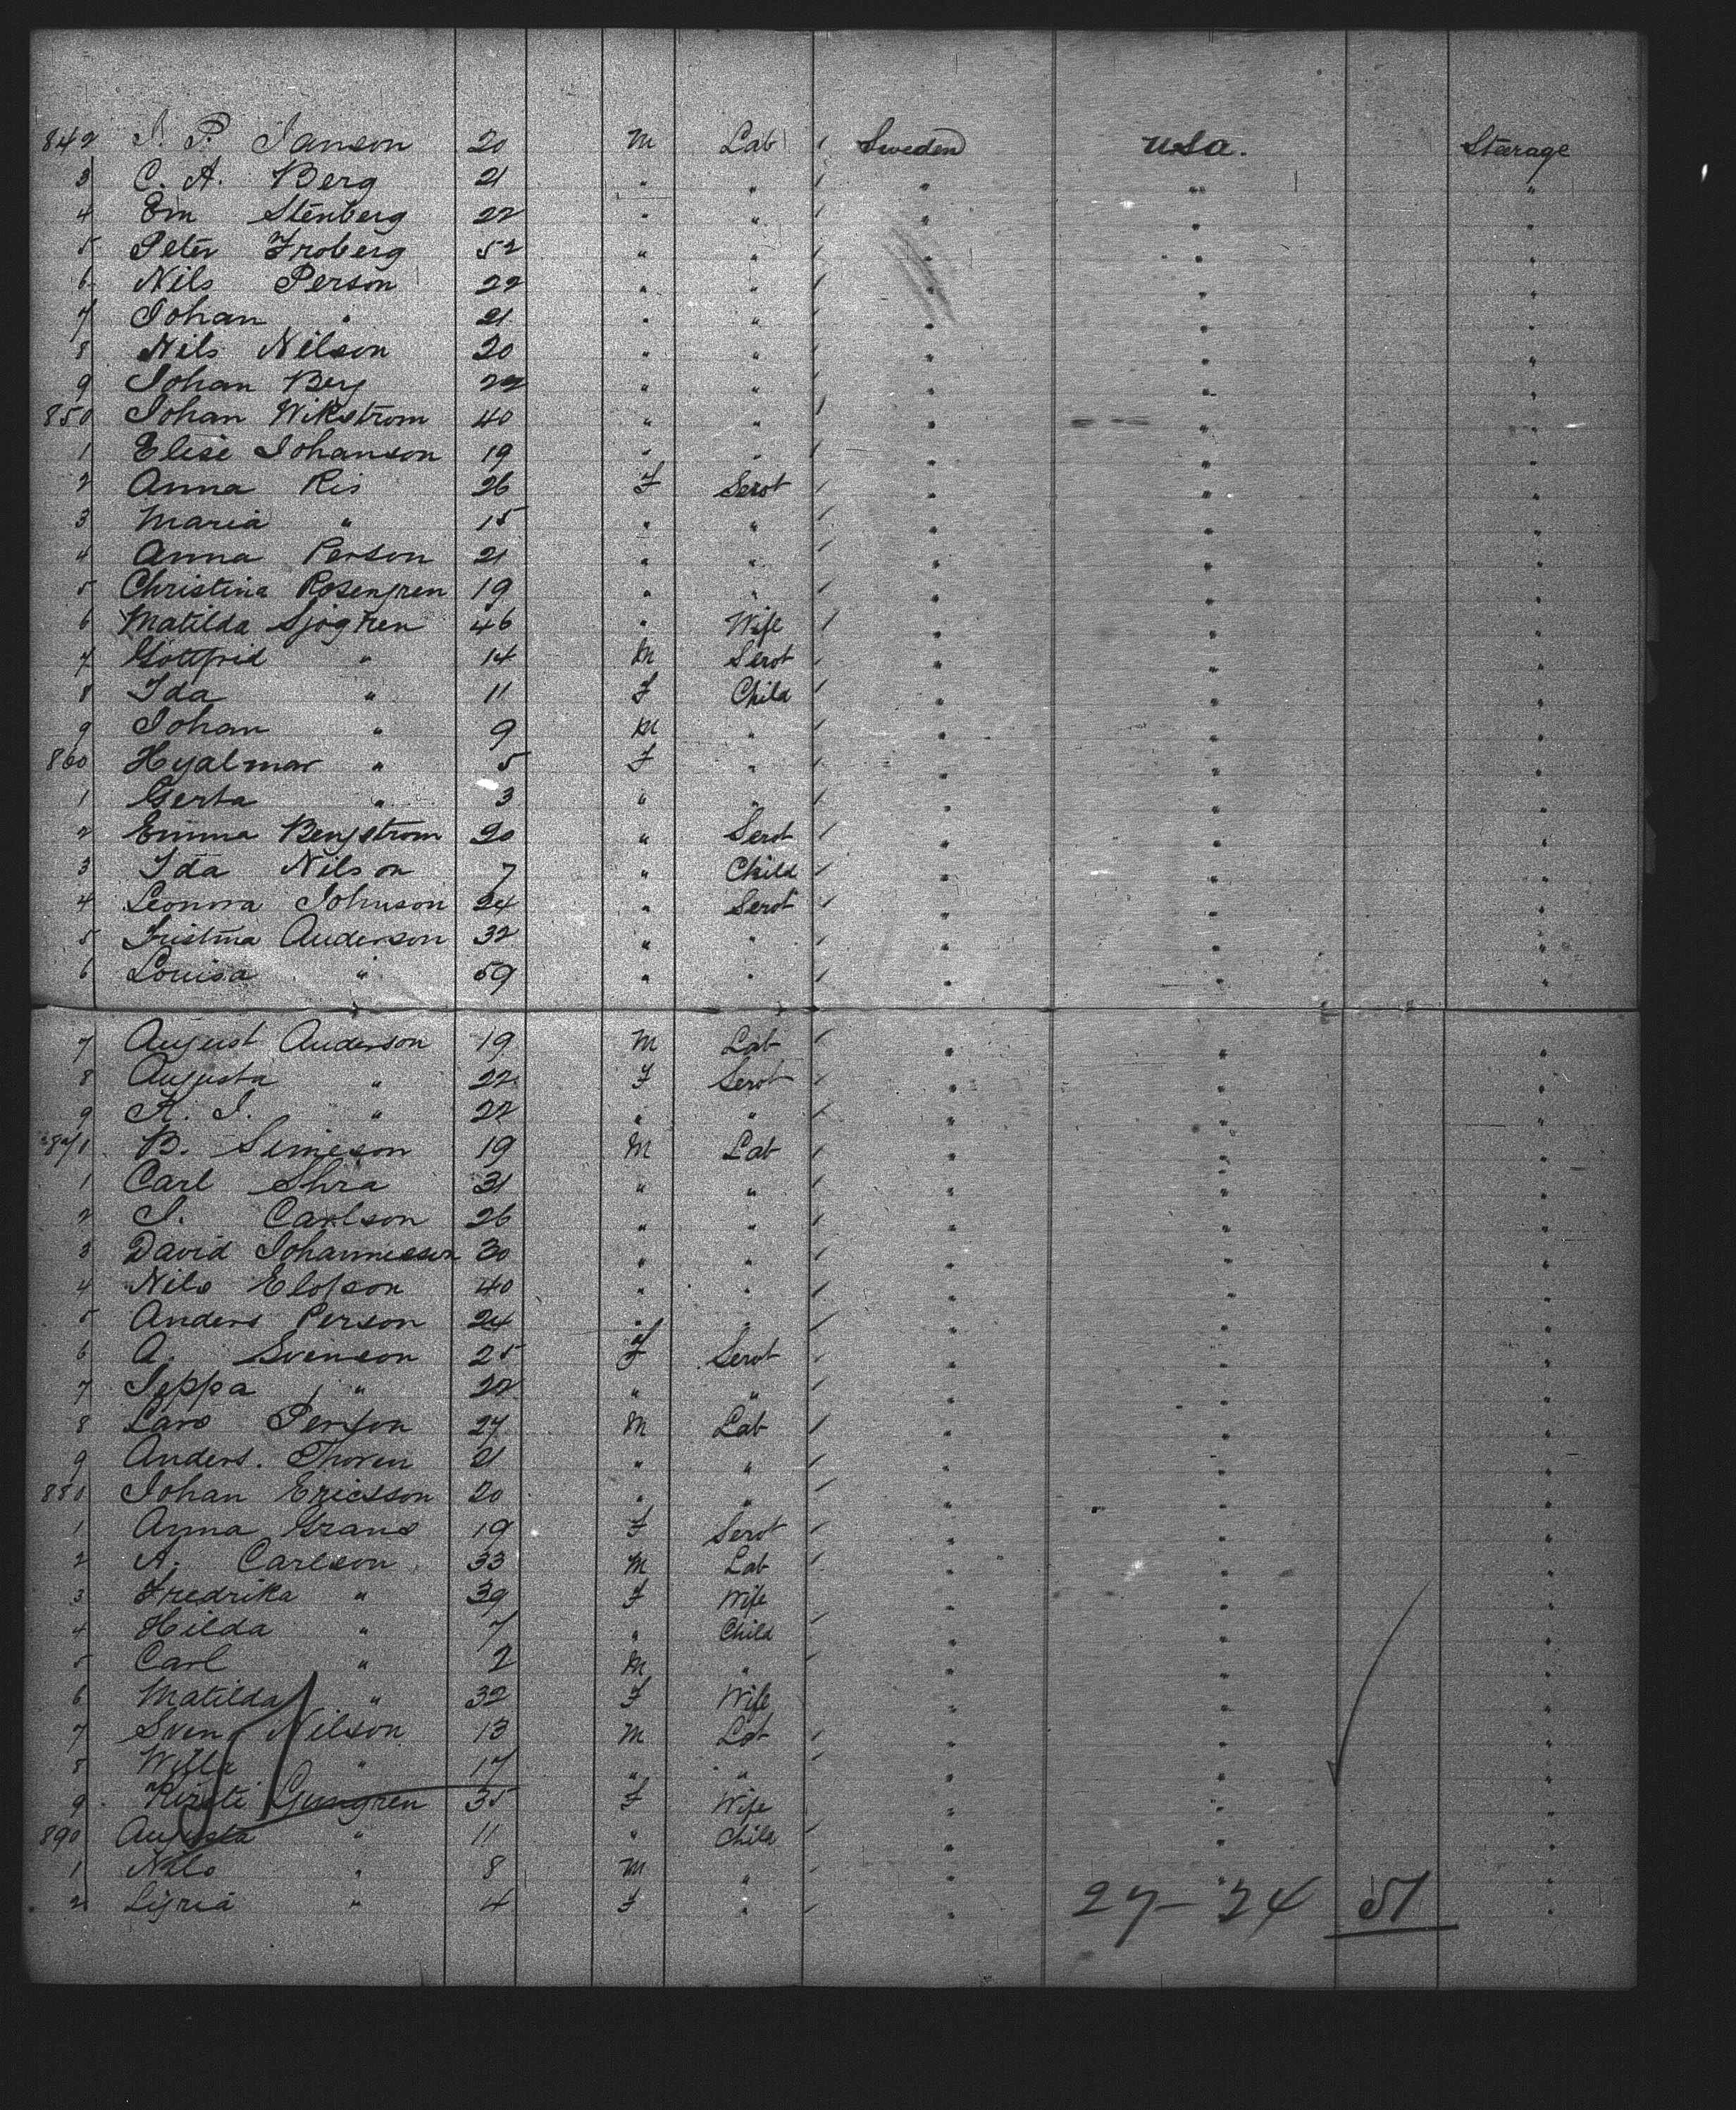 842 J. P. Janson 20 M Lab Sweden USA. Stearage
3 C. A. Berg 21 " " " " "
4 Em Stenberg 22 " " " " "
5 Peter Froberg 52 " " " " "
6 Nils Person 22 " " " " "
7 Johan " 21 " " " " "
8 Nils Nilson 20 " " " " "
9 Johan Berg 22 " " " " "
850 Johan Wikstrom 40 " " " " "
1 Elise Johanson 19 " " " " "
2 Anna Ris 26 F Servt " " "
3 Maria " 15 " " " " "
4 Anna Person 21 " " " " "
5 Christina Rosengren 19 " " " " "
6 Matilda Sjogren 46 " Wife " " "
7 Gottfrid " 14 M Servt " " "
8 Ida " 11 F Child " " "
9 Johan " 9 M " " " "
860 Hyalmar " 5 F " " " "
1 Gerta " 3 " " " " "
2 Emma Bengstrom 20 " Servt " " "
3 Ida Nilson 7 " Child " " "
4 Leonora Johnson 24 " Servt " " "
5 Anderson 32 " " " " "
6 Louisa " 59 " " " " "
7 August Anderson 19 M Lab " " "
8 Augusta " 22 F Servt " " "
9 A. J. " 22 " " " " "
871 B. Simeson 19 M Lab " " "
1 Carl 31 " " " " "
2 J. Carlson 26 " " " " "
3 David Johannessen 30 " " " " "
4 Nils Elofson 40 " " " " "
5 Anders Person 24 " " " " "
6 A. Svenson 25 F Servt " " "
7 Jeppa " 22 " " " " "
8 Lars Person 27 M Lab " " "
9 Anders. Thoren 21 " " " " "
880 Johan Ericsson 20 " " " " "
1 Anna Grans 19 F Servt " " "
2 A. Carlson 33 M Lab " " "
3 Fredrika " 39 F Wife " " "
4 Hilda " 7 " Child " " "
5 Carl " 2 M " " " "
6 Matilda " 32 F Wife " " "
7 Sven Nilson 13 M Lab " " "
8 " 17 " " " " "
9 Kirsti 35 F Wife " " "
890 Augusta " 11 " Child " " "
1 Nils " 8 M " " " "
2 " 4 F " " " "
27 - 24 51